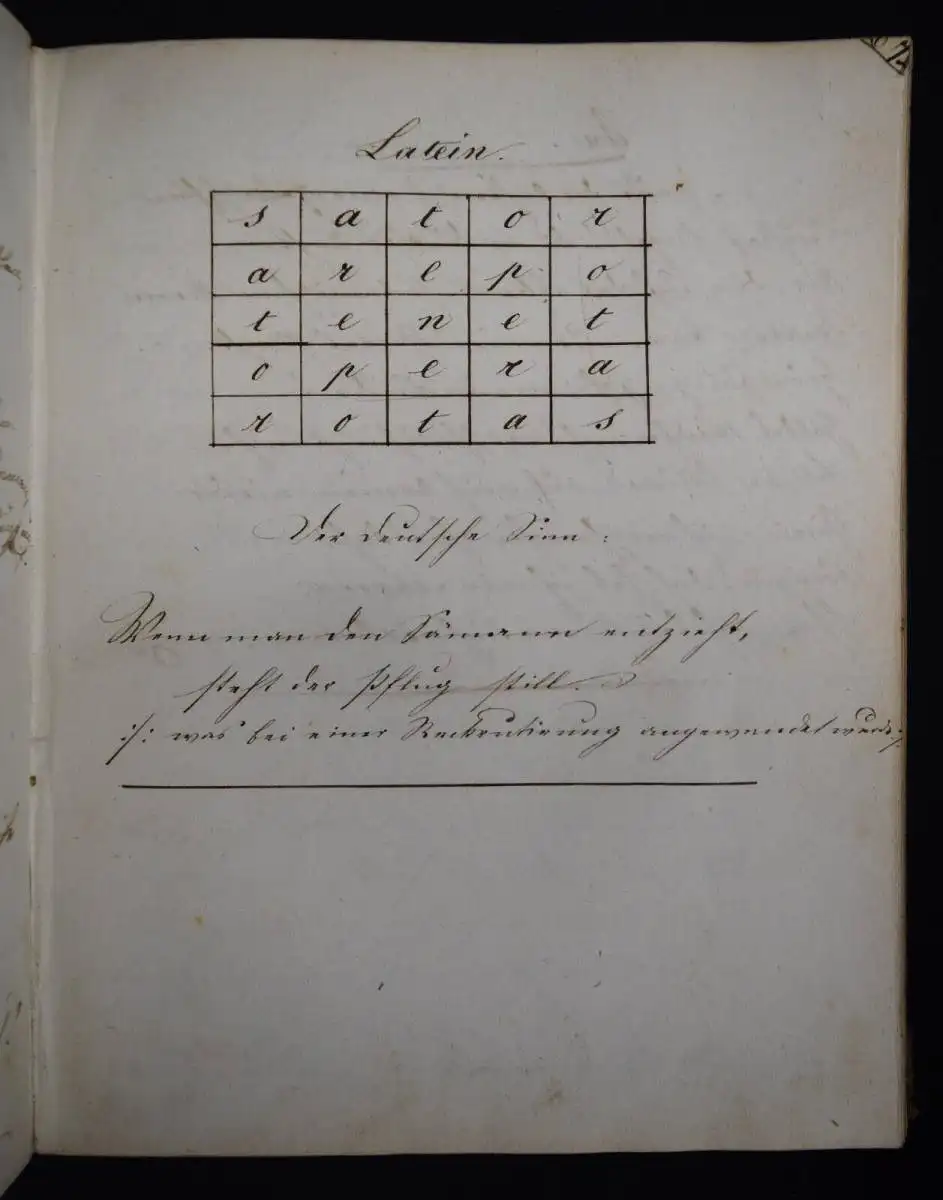 Latein.
s a t o r
a r e p o
t e n e t
o p e r a
r o t a s
Der deutsche Sinn:
Wenn man den Sämann entzieht,
steht der Pflug still.
:/: was bei einer Reckrutirung angewendet wurde :/: